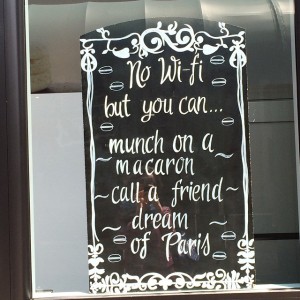 No Wi-fi
but you can...
munch on a
~ macaron ~
~ call a friend ~
~ dream ~
of Paris